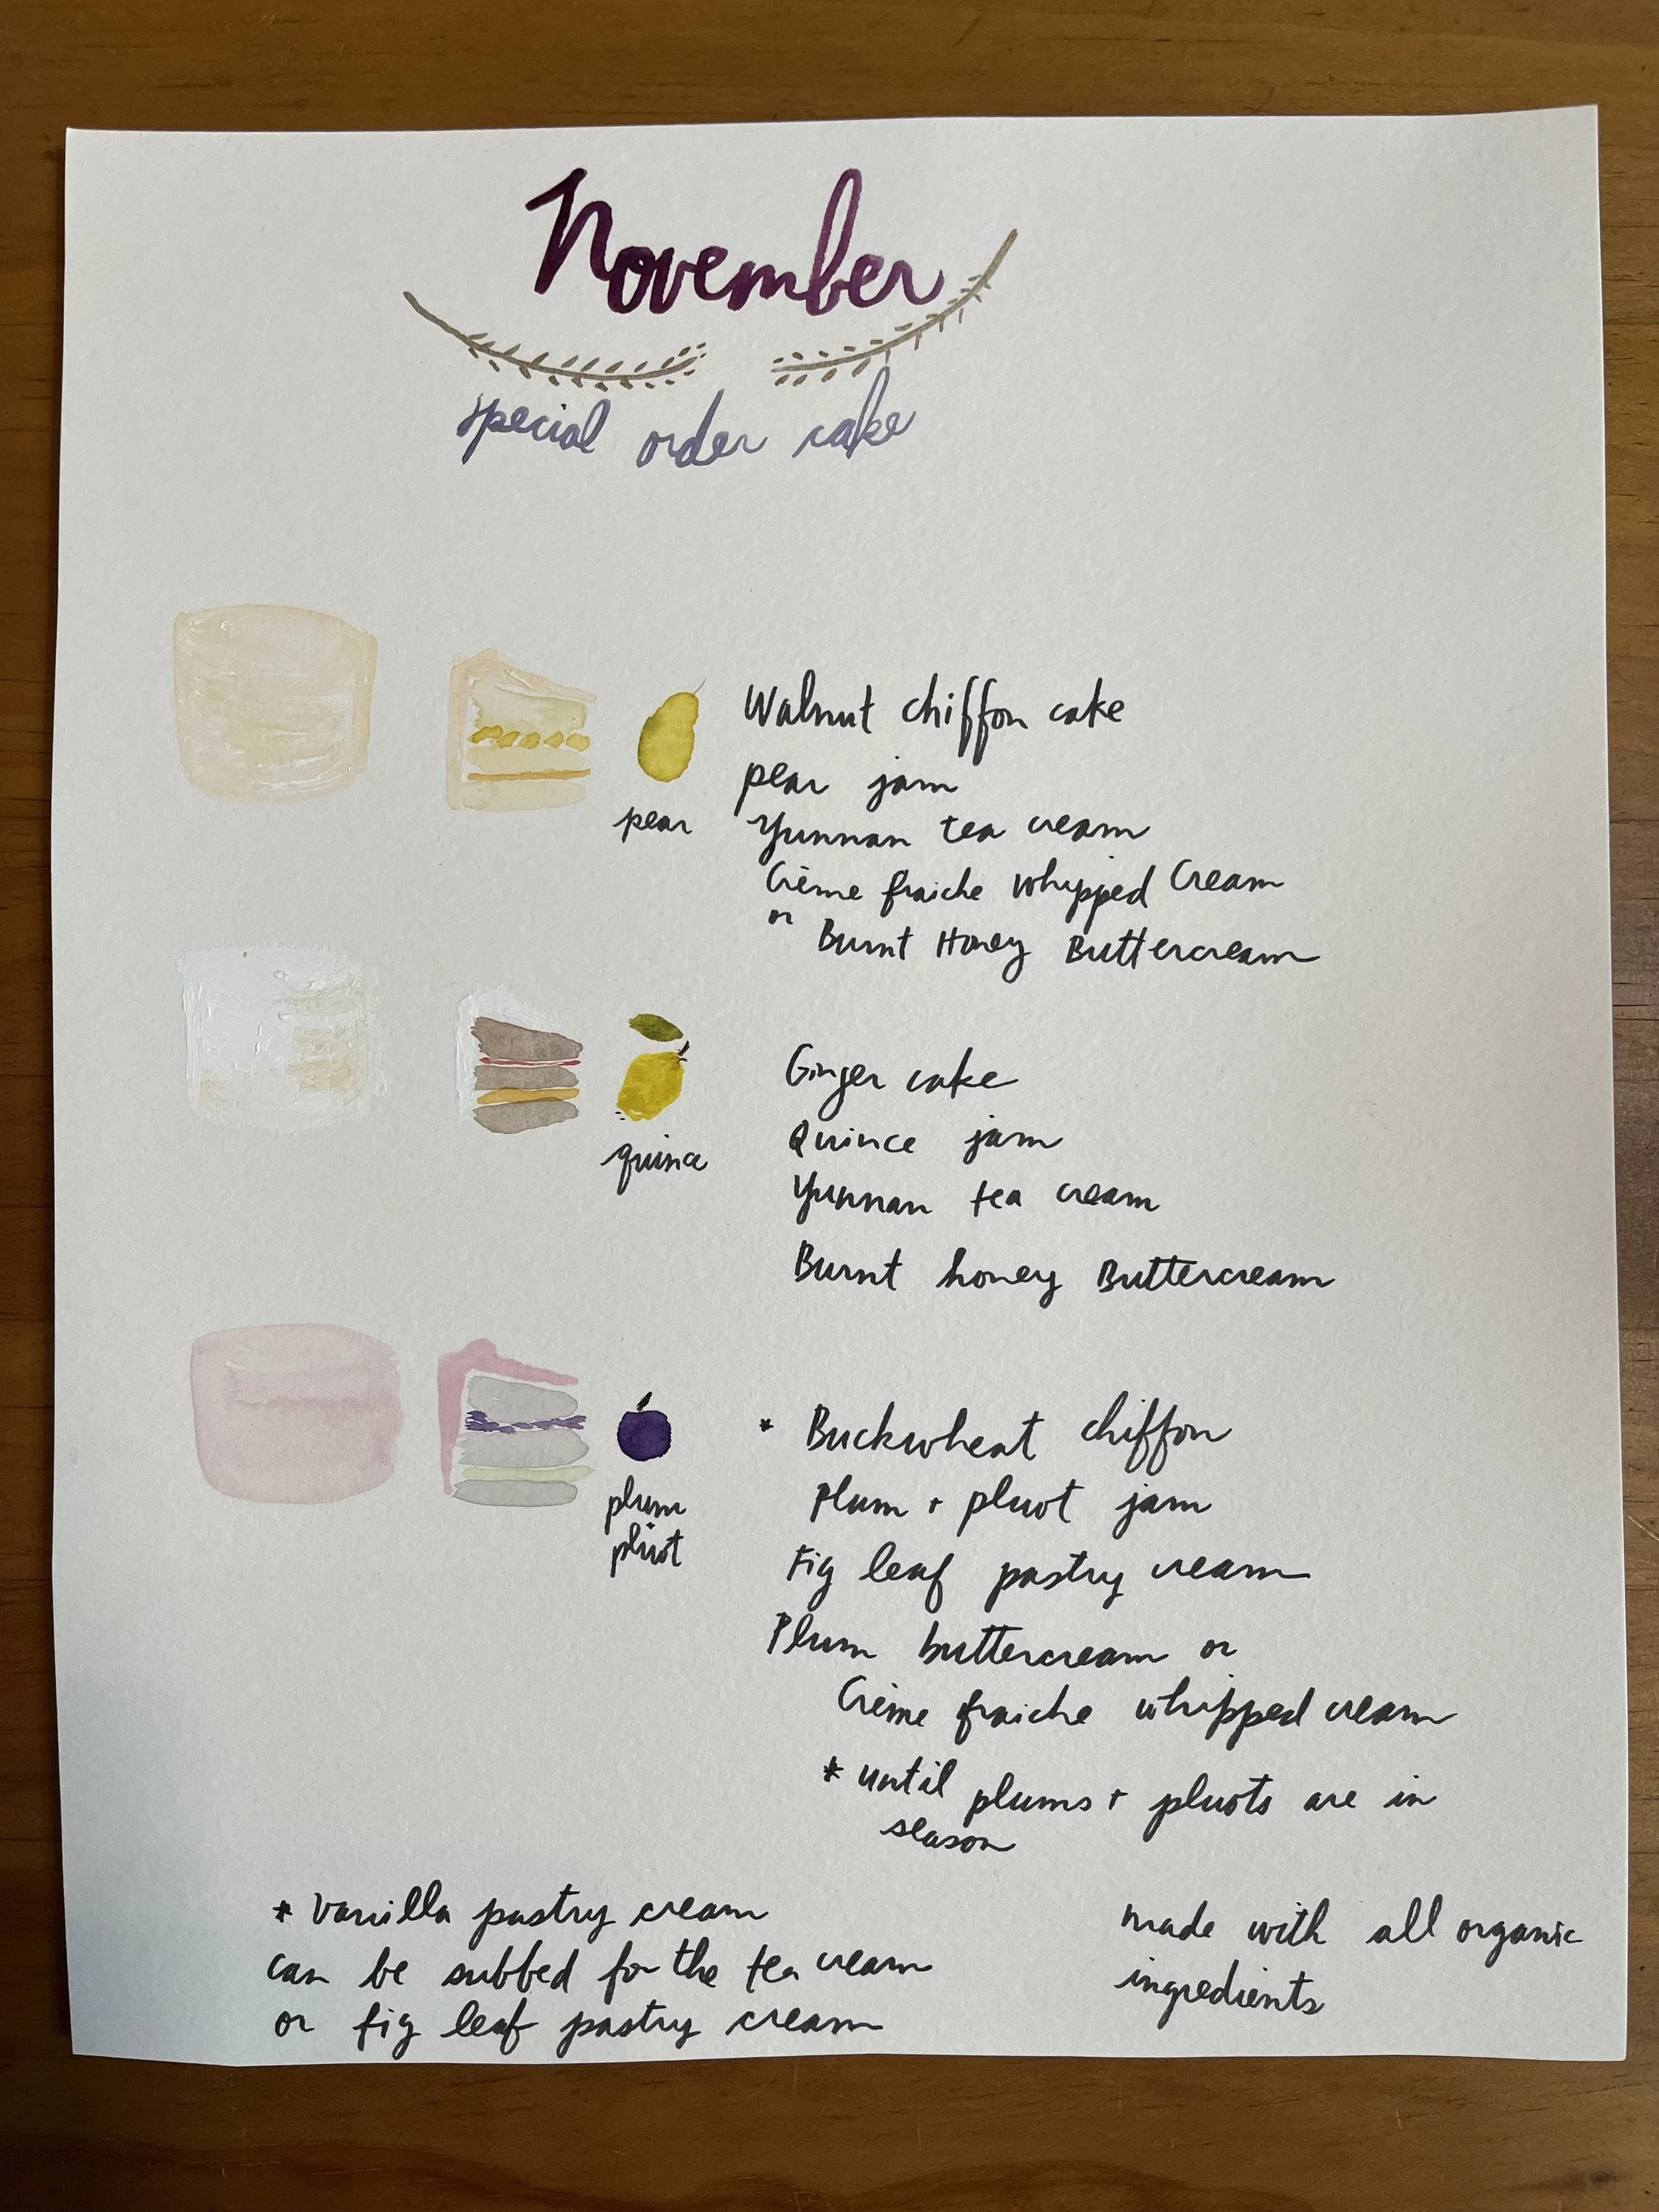 November
special order cake
Walnut chiffon cake
pear jam
pear
Yunnan tea cream
Crème fraiche whipped Cream
or
Burnt Honey Buttercream
Ginger cake
Quince jam
quince
Yunnan tea cream
Burnt honey Buttercream
* Buckwheat chiffon
Plum + pluot jam
plum
pluot
Fig leaf pastry cream
Plum buttercream or
Crème fraiche whipped cream
* until plums + pluots are in
season
* Vanilla pastry cream
can be subbed for the tea cream
or fig leaf pastry cream
made with all organic
ingredients